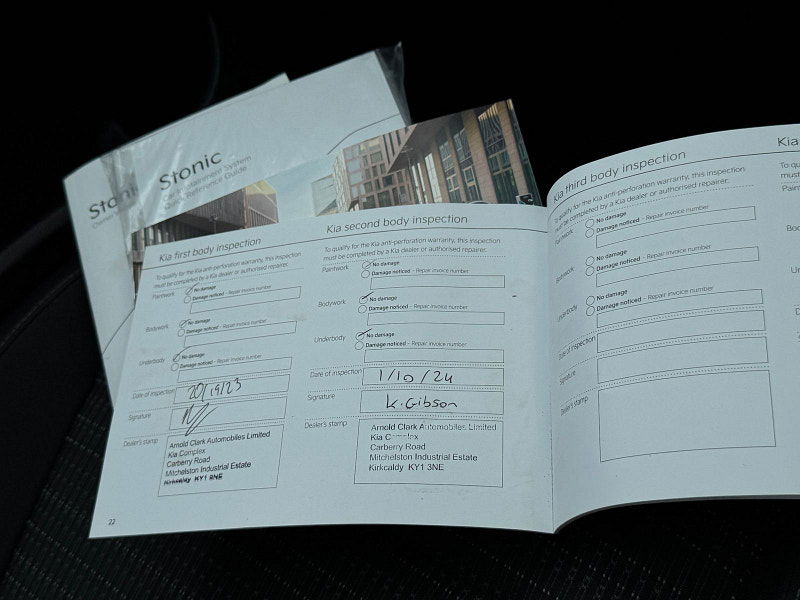 Stonic
Stonic
Car Infotainment System
Quick Reference Guide
Kia first body inspection
To qualify for the Kia anti-perforation warranty, this inspection
must be completed by a Kia dealer or authorised repairer.
Paintwork
No damage
Damage noticed – Repair invoice number
Bodywork
No damage
Damage noticed – Repair invoice number
Underbody
No damage
Damage noticed – Repair invoice number
Date of inspection
Signature
Dealer's stamp
Arnold Clark Automobiles Limited
Kia Complex
Carberry Road
Mitchelston Industrial Estate
Kirkcaldy KY1 3NE
22
Kia second body inspection
To qualify for the Kia anti-perforation warranty, this inspection
must be completed by a Kia dealer or authorised repairer.
Paintwork
No damage
Damage noticed – Repair invoice number
Bodywork
No damage
Damage noticed – Repair invoice number
Underbody
No damage
Damage noticed – Repair invoice number
Date of inspection 1/10/24
Signature K.Gibson
Dealer's stamp
Arnold Clark Automobiles Limited
Kia Complex
Carberry Road
Mitchelston Industrial Estate
Kirkcaldy KY1 3NE
Kia third body inspection
To qualify for the Kia anti-perforation warranty, this inspection
must be completed by a Kia dealer or authorised repairer.
Paintwork
No damage
Damage noticed – Repair invoice number
Bodywork
No damage
Damage noticed – Repair invoice number
Underbody
No damage
Damage noticed – Repair invoice number
Date of inspection
Signature
Dealer's stamp
Kia
To qu
must
Pain